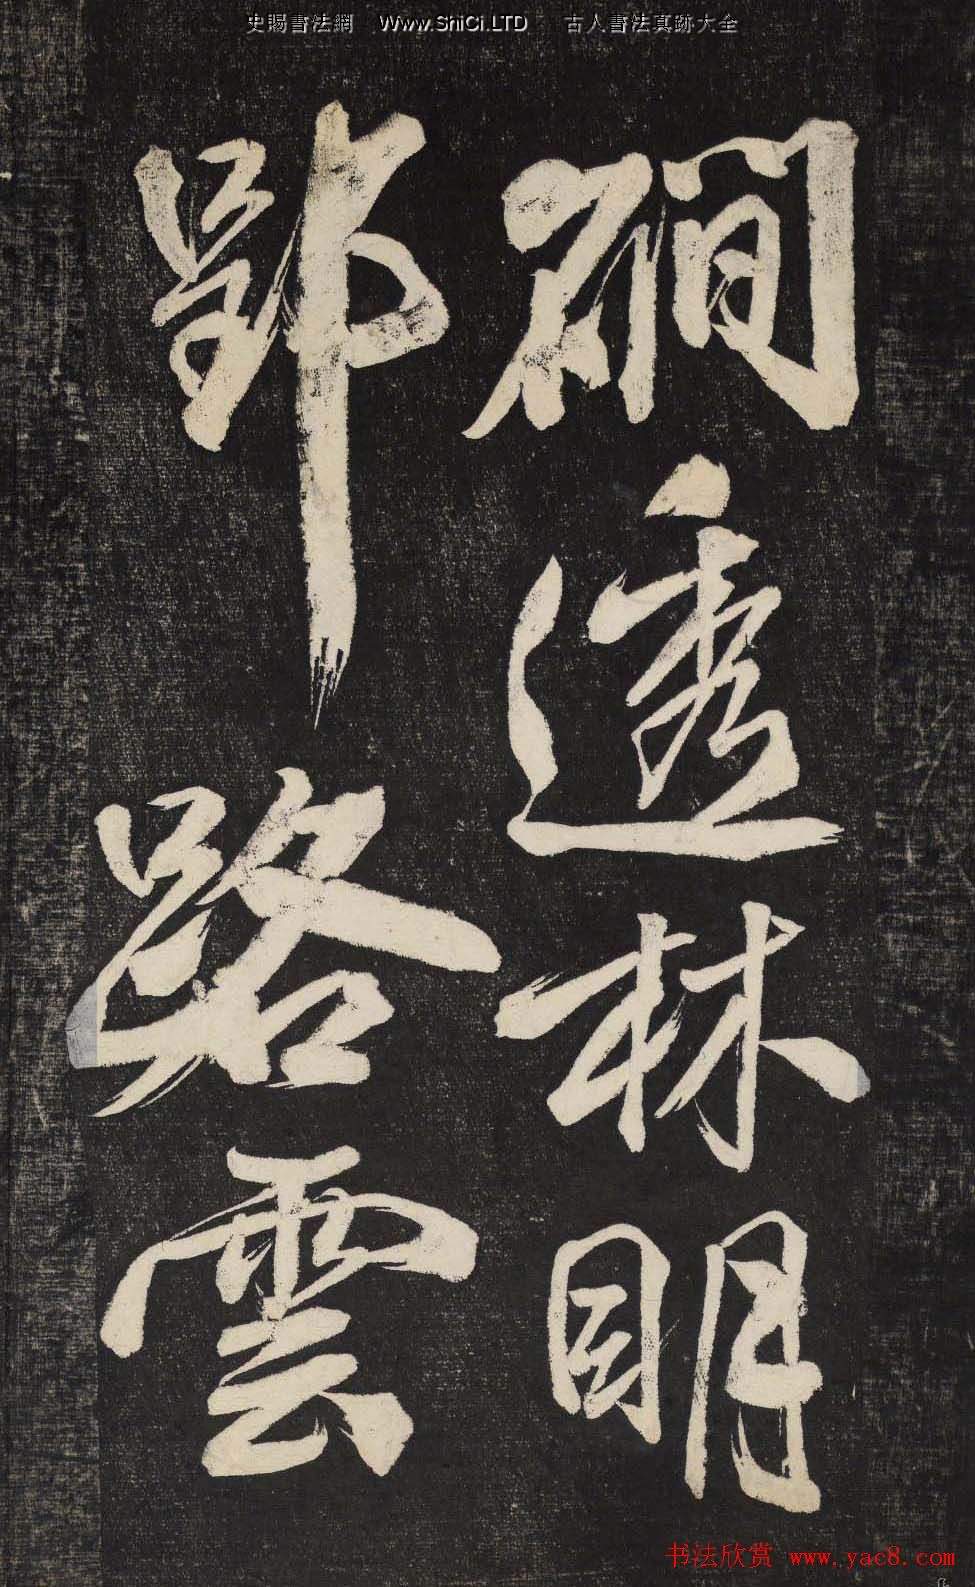 史賜書法網 Www.ShiCi.LTD 古人書法真跡大全
磵透林明
郢路雲
书法欣赏 www.yac8.com